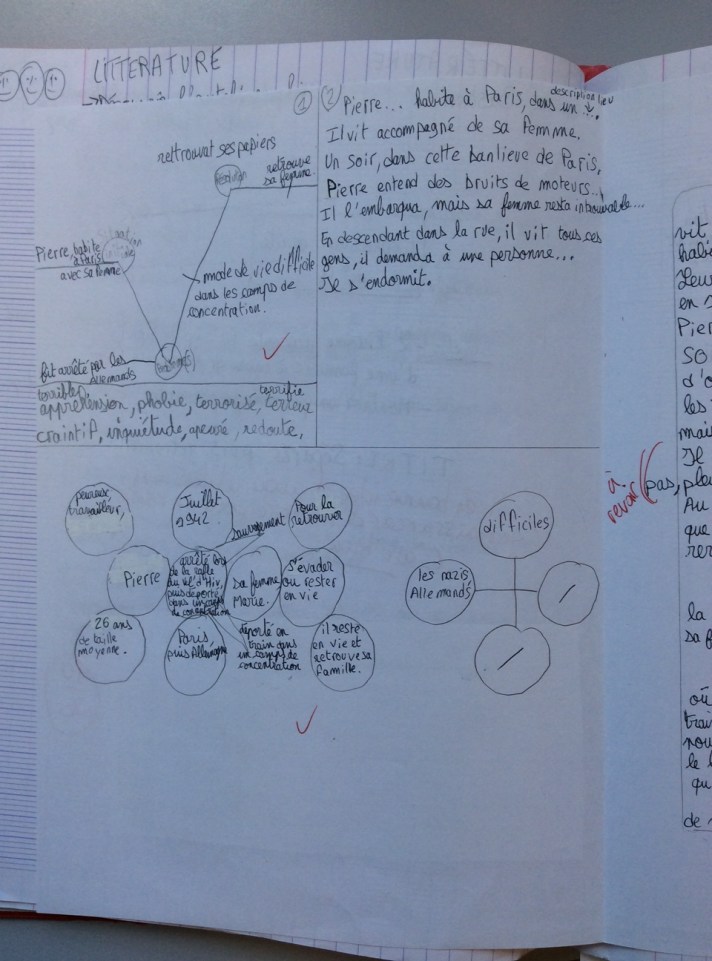 LITTERATURE
①
retrouvat ses papiers
retrouve
sa femme.
Pierre, habite
à Paris
avec sa femme
mode de vie difficile
dans les camps de
concentration.
fut arrêté par les
Allemands
terribles
terrifie
appréhension, phobie, terrorisé, terreur
craintif, inquiétude, apeuré, redoute,
②
description lieu
Pierre... habite à Paris, dans un ...
Il vit accompagné de sa femme.
Un soir, dans cette banlieue de Paris,
Pierre entend des bruits de moteurs...
Il l'embarqua, mais sa femme resta introuvable...
En descendant dans la rue, il vit tous ces
gens, il demanda à une personne...
Je s'endormit.
peureux
travailleur,
Juillet
1942
sauvetement
Pour la
retrouver
Pierre
arrêté lors
de la rafle
du vel' d'Hiv,
puis déporté
dans un camp
de concentration
sa femme
Marie.
s'évader
ou rester
en vie
26 ans
de taille
moyenne.
Paris
puis Allemagne
déporté en
train dans
un camps de
concentration
il reste
en vie et
retrouve sa
famille.
difficiles
les nazis
Allemands
à
revoir
vit
habi
Leu
en
Pier
so
d'o
les
mai
Je
pas, pleu
Au
que
rer
la
sa f
où
trai
nou
le
qu
de